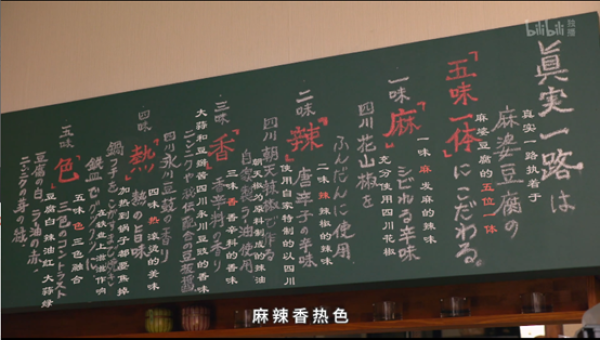 bilibili 独播
眞実一路は
真实一路执着于
麻婆豆腐の
麻婆豆腐的五位一体
「五味一体」にこだわる。
一味 麻 发麻的辣味
一味「麻」シビれる辛味
充分使用四川花椒
四川花山椒を
ふんだんに使用
二味 辣 辣椒的辣味
二味「辣」唐辛子の辛味
使用自家特制的以四川
朝天椒为原料制成的辣油
四川朝天辣椒で作る
自家製ラー油使用
三味 香 香辛料的香味
三味「香」香辛料の香り
大蒜和豆瓣酱四川永川豆豉的香味
ニンニクや秘伝配合の豆板醤
四川永川豆鼓の香り
四味 热 滚烫的美味
四味「熱」熱の旨味
加热到锅子都要焦掉
在铁盘上滋滋作响
鍋フチをこがし
鉄皿でグツグツに
五味 色 三色融合
五味「色」三色のコントラスト
豆腐白 辣油红 大蒜绿
豆腐の白、ラー油の赤、
ニンニクの芽の緑。
麻辣香热色